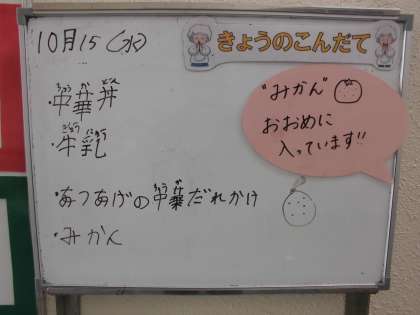 10月15(水)
きょうのこんだて
・中華丼
ちゅうかどん
・牛乳
ぎゅうにゅう
・あつあげの中華だれかけ
ちゅうか
・みかん
"みかん"
おおめに
入っています!!